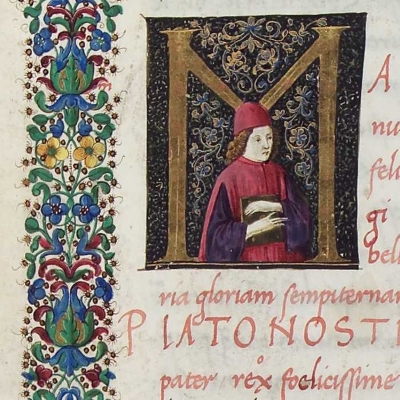 M A
nu
felic
gi
bell
ria gloriam sempiternam
PLATO NOST
pater rex foelicissime